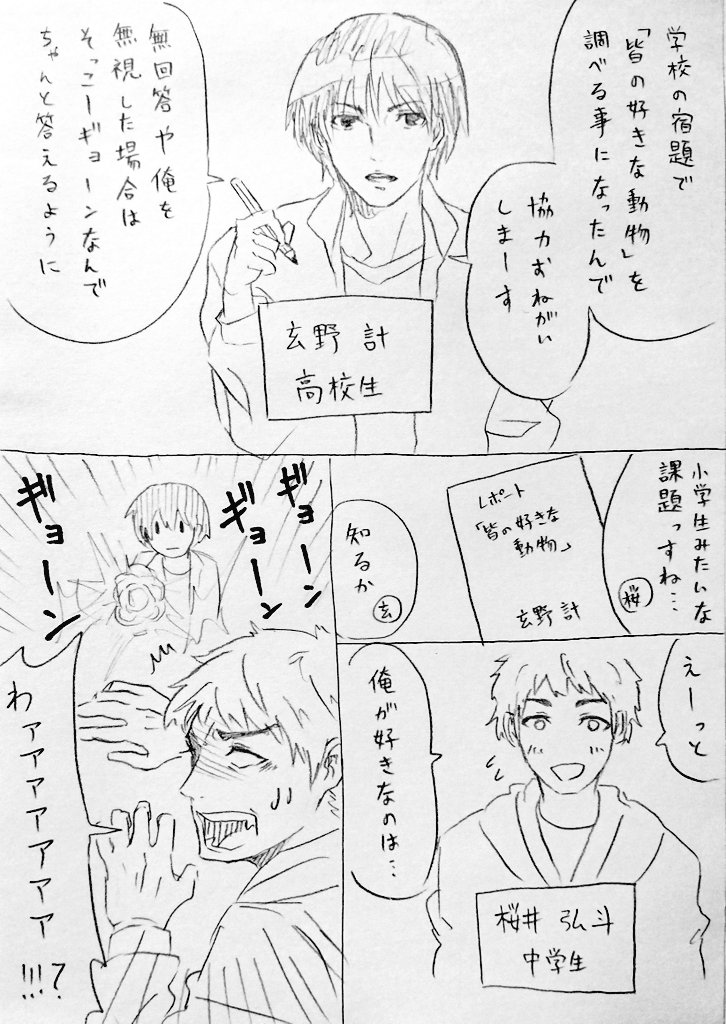 学校の宿題で
「皆の好きな動物」を
調べる事になったんで
協力おねがい
しまーす
無回答や俺を
無視した場合は
そっこーギョーンなんで
ちゃんと答えるように
玄野 計
高校生
小学生みたいな
課題っすね…
桜
レポート
「皆の好きな
動物」
玄野 計
知るか
玄
えーっと
俺が好きなのは…
桜井 弘斗
中学生
ギョーン
ギョーン
ギョーン
わァァァァァァァ!!!?